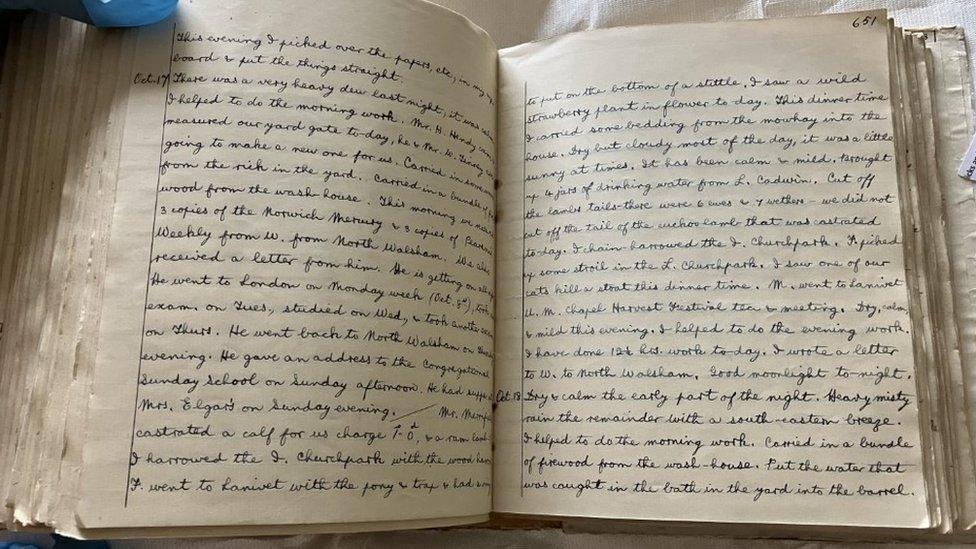 This evening I picked over the papers, etc, in my
board & put the things straight.
Oct. 17 There was a very heavy dew last night, it was
I helped to do the morning work. Mr. H. Hendy
measured our yard gate to-day, he & Mr. W.
going to make a new one for us. Carried in some
from the rick in the yard. Carried in a bundle of
wood from the wash-house. This morning we
3 copies of the Norwich Mercury & 3 copies of Pearson
Weekly from W. from North Walsham. We also
received a letter from him. He is getting on
He went to London on Monday week (Oct. 8th), took
exam. on Tues., studied on Wed., & took another
on Thurs. He went back to North Walsham on
evening. He gave an address to the Congregational
Sunday School on Sunday afternoon. He had supper
Mrs. Elgar's on Sunday evening. Mr.
castrated a calf for us charge & a ram lamb
I harrowed the I. Churchpark with the wood
F. went to Lanivet with the pony & trap & had
651
to put on the bottom of a stittle. I saw a wild
strawberry plant in flower to-day. This dinner time
I carried some bedding from the mowhay into the
house. Dry but cloudy most of the day, it was a little
sunny at times. It has been calm & mild. Brought
up 4 jars of drinking water from L. Cadwin. Cut off
the lambs tails - there were 6 ewes & 7 wethers - we did not
cut off the tail of the cuckoo lamb that was castrated
to-day. I chain-harrowed the I. Churchpark. F. picked
up some stroil in the L. Churchpark. I saw one of our
cats kill a stoat this dinner time. M. went to Lanivet
U. M. Chapel Harvest Festival tea & meeting. Dry, calm,
& mild this evening. I helped to do the evening work.
I have done 12½ hrs. work to-day. I wrote a letter
to W. to North Walsham. Good moonlight to-night.
Oct. 18. Dry & calm the early part of the night. Heavy misty
rain the remainder with a south-eastern breeze.
I helped to do the morning work. Carried in a bundle
of firewood from the wash-house. Put the water that
was caught in the bath in the yard into the barrel.